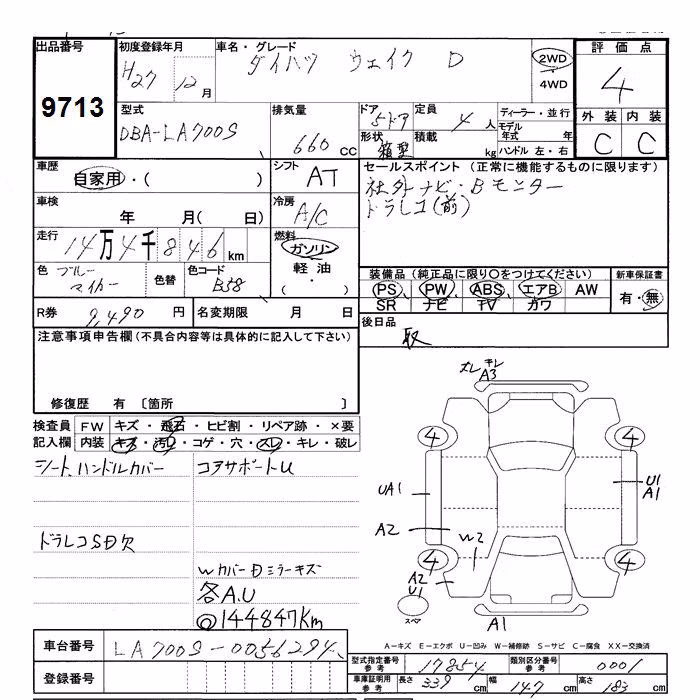 出品番号
9713
初度登録年月
H27年 12月
車名・グレード
ダイハツ ウェイク D
2WD
4WD
評価点
4
外装 内装
C C
型式
DBA-LA700S
排気量
660 CC
ドア
5ドア
定員
4人
形状
箱型
積載
kg
ディーラー・並行
モデル年式 年
ハンドル 左・右
車歴
自家用・( )
シフト
AT
車検
年 月( 日)
冷房
A/C
走行
14万4千846km
燃料
ガソリン
軽油
( ・ )
色
ブルー
マイカー
色替
色コード
B58
セールスポイント (正常に機能するものに限ります)
社外ナビ・Bモニター
ドラレコ(前)
装備品(純正品に限り○をつけてください)
PS PW ABS エアB AW
SR ナビ TV カワ
新車保証書
有・無
R券 9,490円
名変期限 月 日
後日品
取
注意事項申告欄(不具合内容等は具体的に記入して下さい)
修復歴 有 〔箇所 〕
検査員 FW キズ・飛石・ヒビ割・リペア跡・×要
記入欄 内装 キズ・汚れ・コゲ・穴・スレ・キレ・破レ
シート、ハンドルカバー
コアサポートU
ドラレコSD欠
WカバーDミラーキズ
各A.U
◎144847Km
ズレ キレ
A3
4 4
UA1
U1
A1
A2
W2
4 4
A2
U1
スペア
A1
A-キズ E-エクボ U-凹み W-補修跡 S-サビ C-腐食 XX-交換済
車台番号 LA700S-0056294
登録番号
型式指定番号 参考 17854
類別区分番号 参考 0001
車庫証明用 参考 長さ 339cm 幅 147cm 高さ 183cm